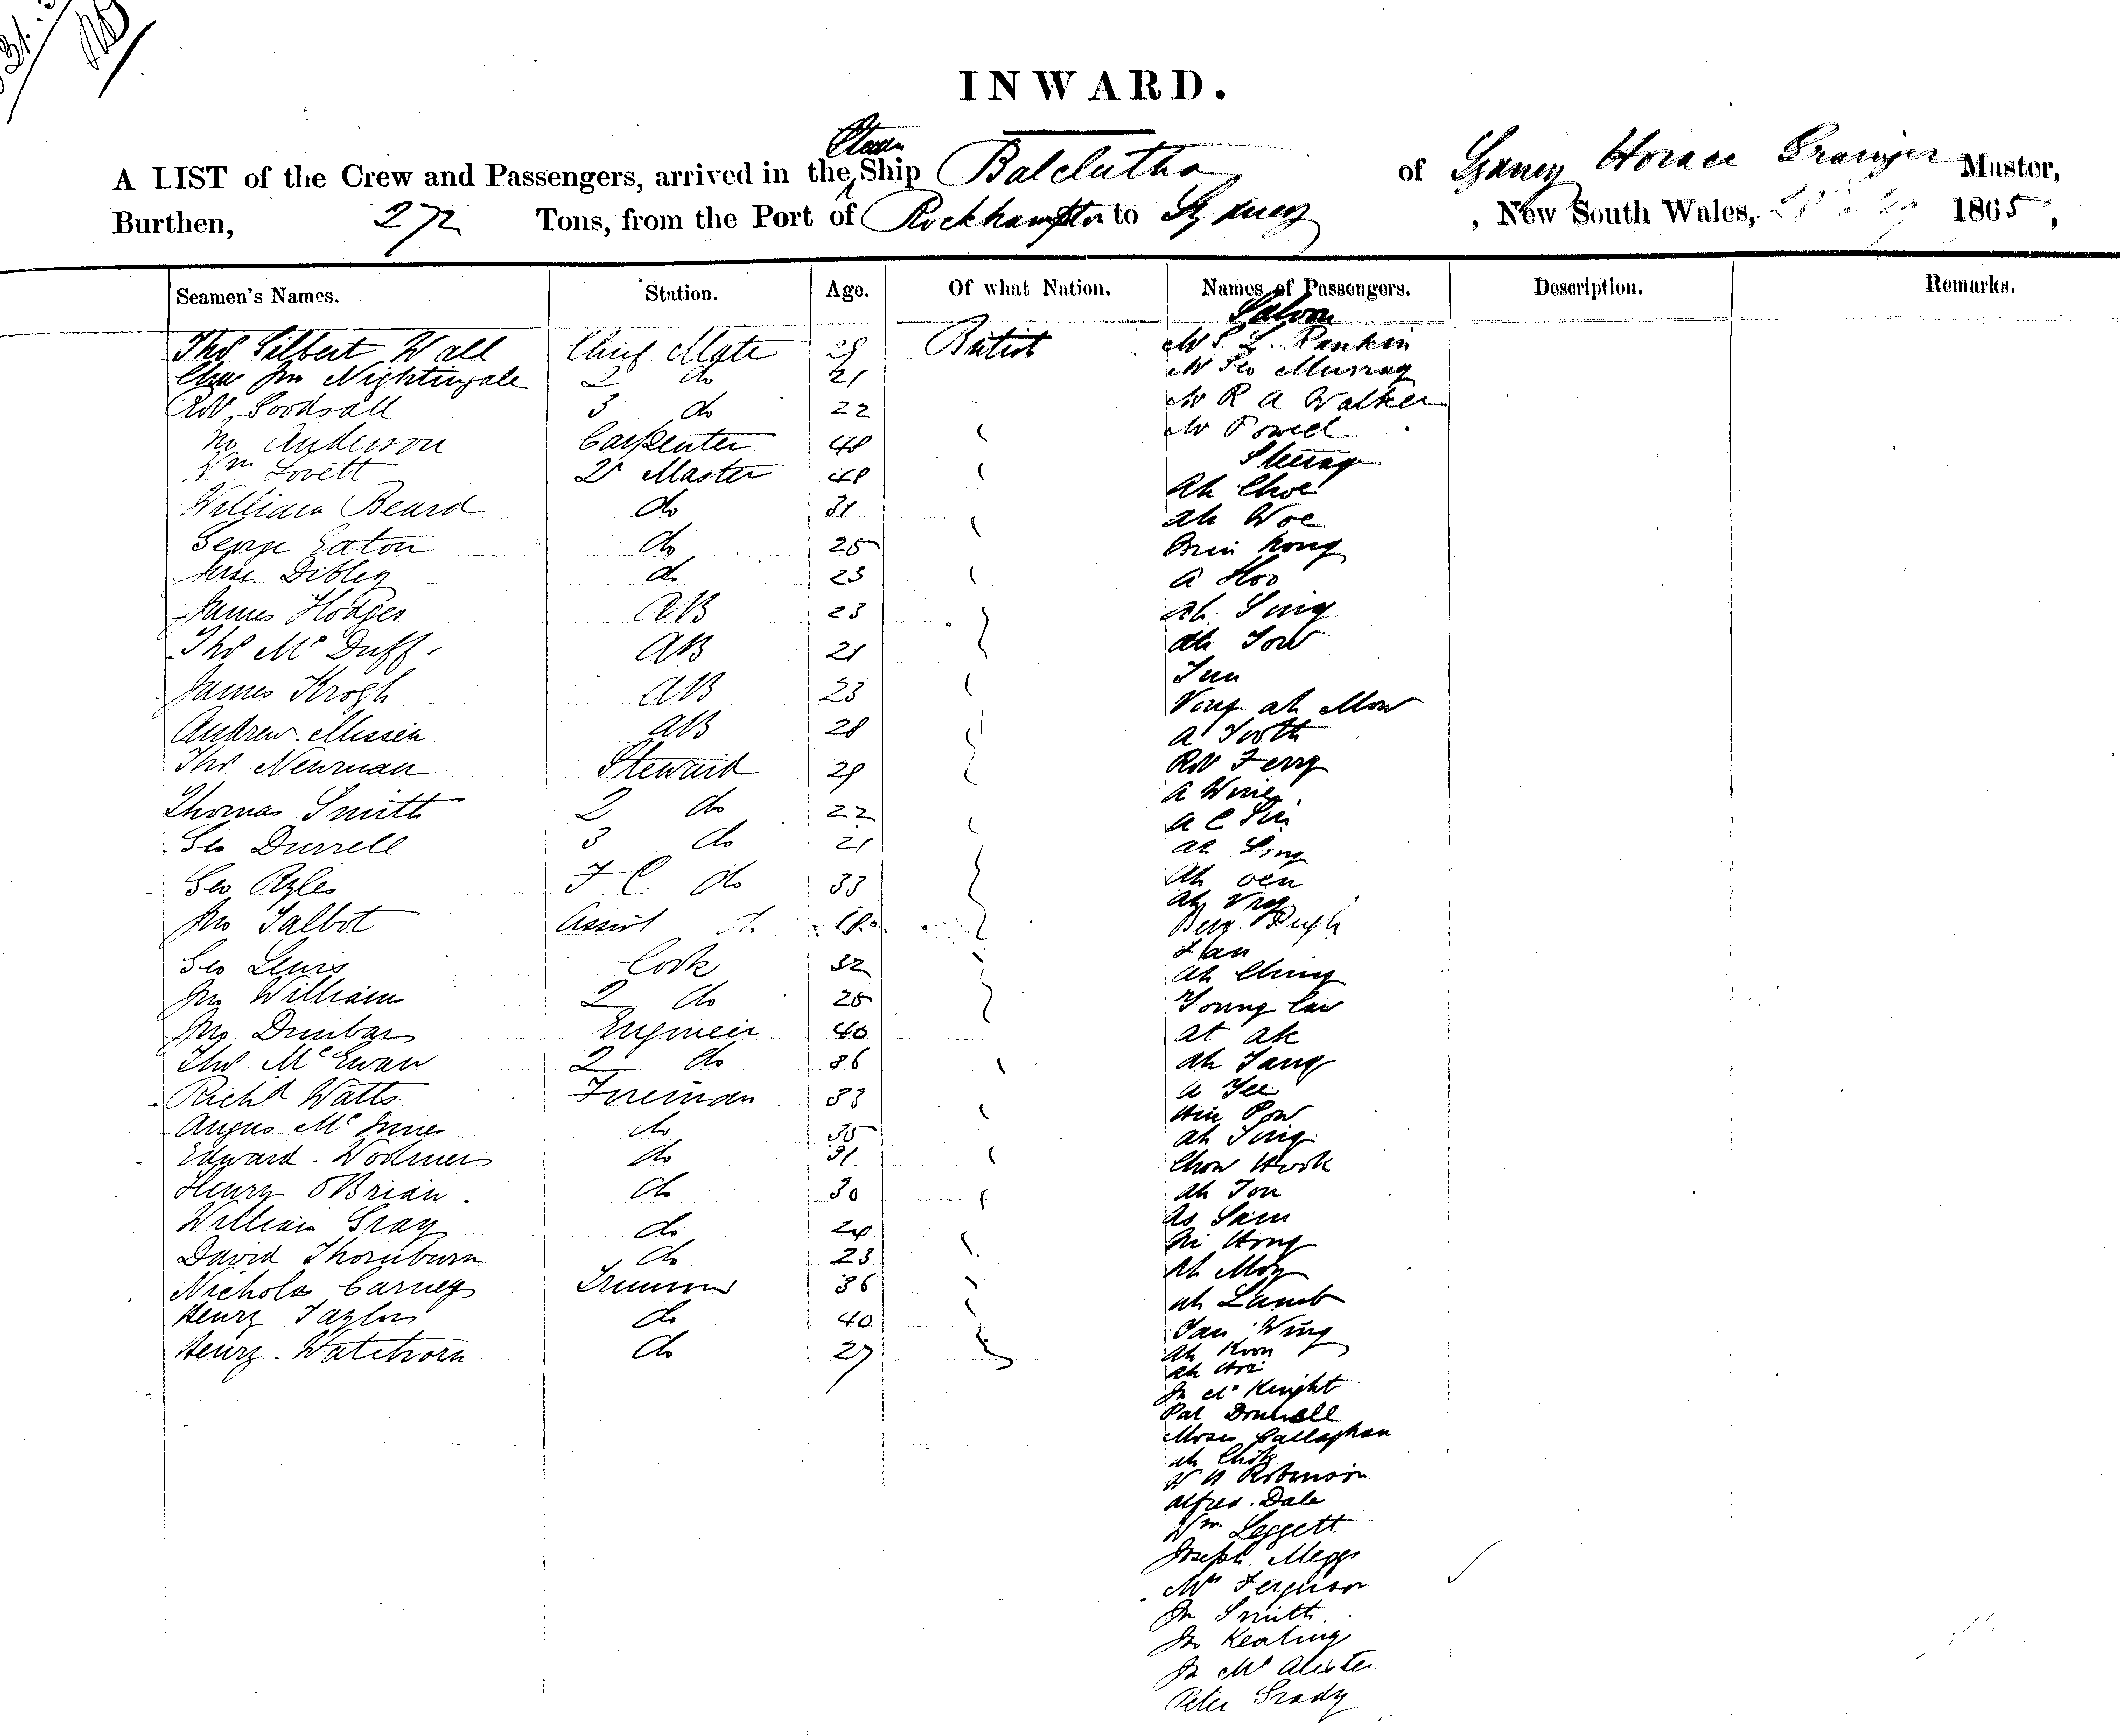 INWARD.
Steam
A LIST of the Crew and Passengers, arrived in the Ship Balclutha of Sydney Horace Grainger Master,
Burthen, 272 Tons, from the Port of Rockhampton to Sydney, New South Wales, 1865,
Seamen's Names. Station. Age. Of what Nation. Names of Passengers. Description. Remarks.
Saloon
Thos Gilbert Wall Chief Mate 29 British Mr Rankin
Chas Jno Nightingale 2 do 21 Mr Geo Murray
Robt Goodsall 3 do 22 Mr R A Walker
Jno Anderson Carpenter 48 Mr Powel
Wm Lovett 2r Master 48 Steerage
Ah Choe
William Beard do 31 Ah Woe
George Eaton do 25 Kong
Dibley do 23 A Hoo
James Hodges AB 23 Ah Sing
Thos McDuff AB 21 Ah Sow
James Krogh AB 23 Jun
Andrew Missen AB 28 Ving ah Mow
A Tooth
Thos Newman Steward 29 Robt Ferry
Thomas Smith 2 do 22 A Wine
A C Sin
Geo Durrell 3 do 21 Ah Sing
Geo Ryles F C do 33 Ah oen
Ah
Jno Talbot Assist do 18
Han
Geo Lewis Cook 32 Ah Ching
Jno William 2 do 25 Young
Jno Dunbar Engineer 40 At ak
Thos McEwan 2 do 36 Ah Tang
Richd Watts Fireman 33 A Yee
Pow
Angus McInnes do 35 Ah Sing
Edward do 31 Chow Hook
Henry O'Brian do 30 Ah Ton
As Sam
William Gray do 24 Hong
David Thornburn do 23 Ah Moy
Nicholas Carney Trimmer 36 Ah Lamb
Henry Taylor do 40 Wing
Henry Watehorn do 27 Ah Koon
Ah Hoi
Jn McKnight
Pat Donnell
Moses Callaghan
Ah Chok
W H Robinson
Alfred Dale
Wm Leggett
Joseph Meggs
Mrs Ferguson
Jn Smith
Jno Keating
Jn McAlister
Peter Grady